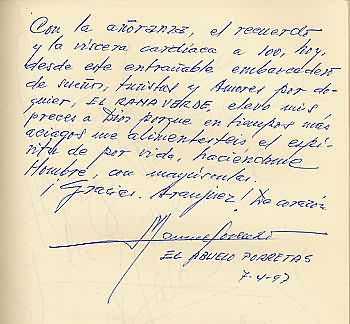 Con la añoranza, el recuerdo
y la víscera cardíaca a 100, hoy,
desde este entrañable embarcadero
de sueños, turistas y Amores por do-
quier, EL RANA VERDE, elevo mis
preces a Dios porque en tiempos más
aciagos me alimentasteis el espí-
ritu de por vida, haciendome
Hombre, con mayúsculas.
¡Gracias. Aranjuez! De corazón
EL ABUELO PORRETAS
7-4-97